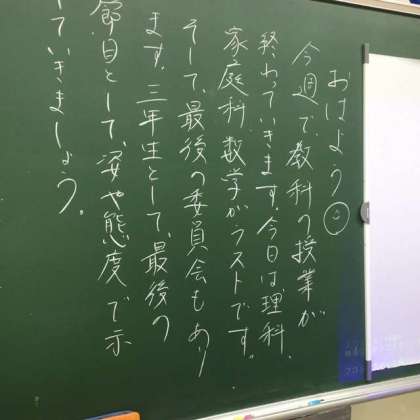 おはよう☺
今週で教科の授業が
終わっていきます。今日は理科、
家庭科、数学がラストです。
そして、最後の委員会もあり
ます。三年生として、最後の
節目として、姿や態度で示
していきましょう。